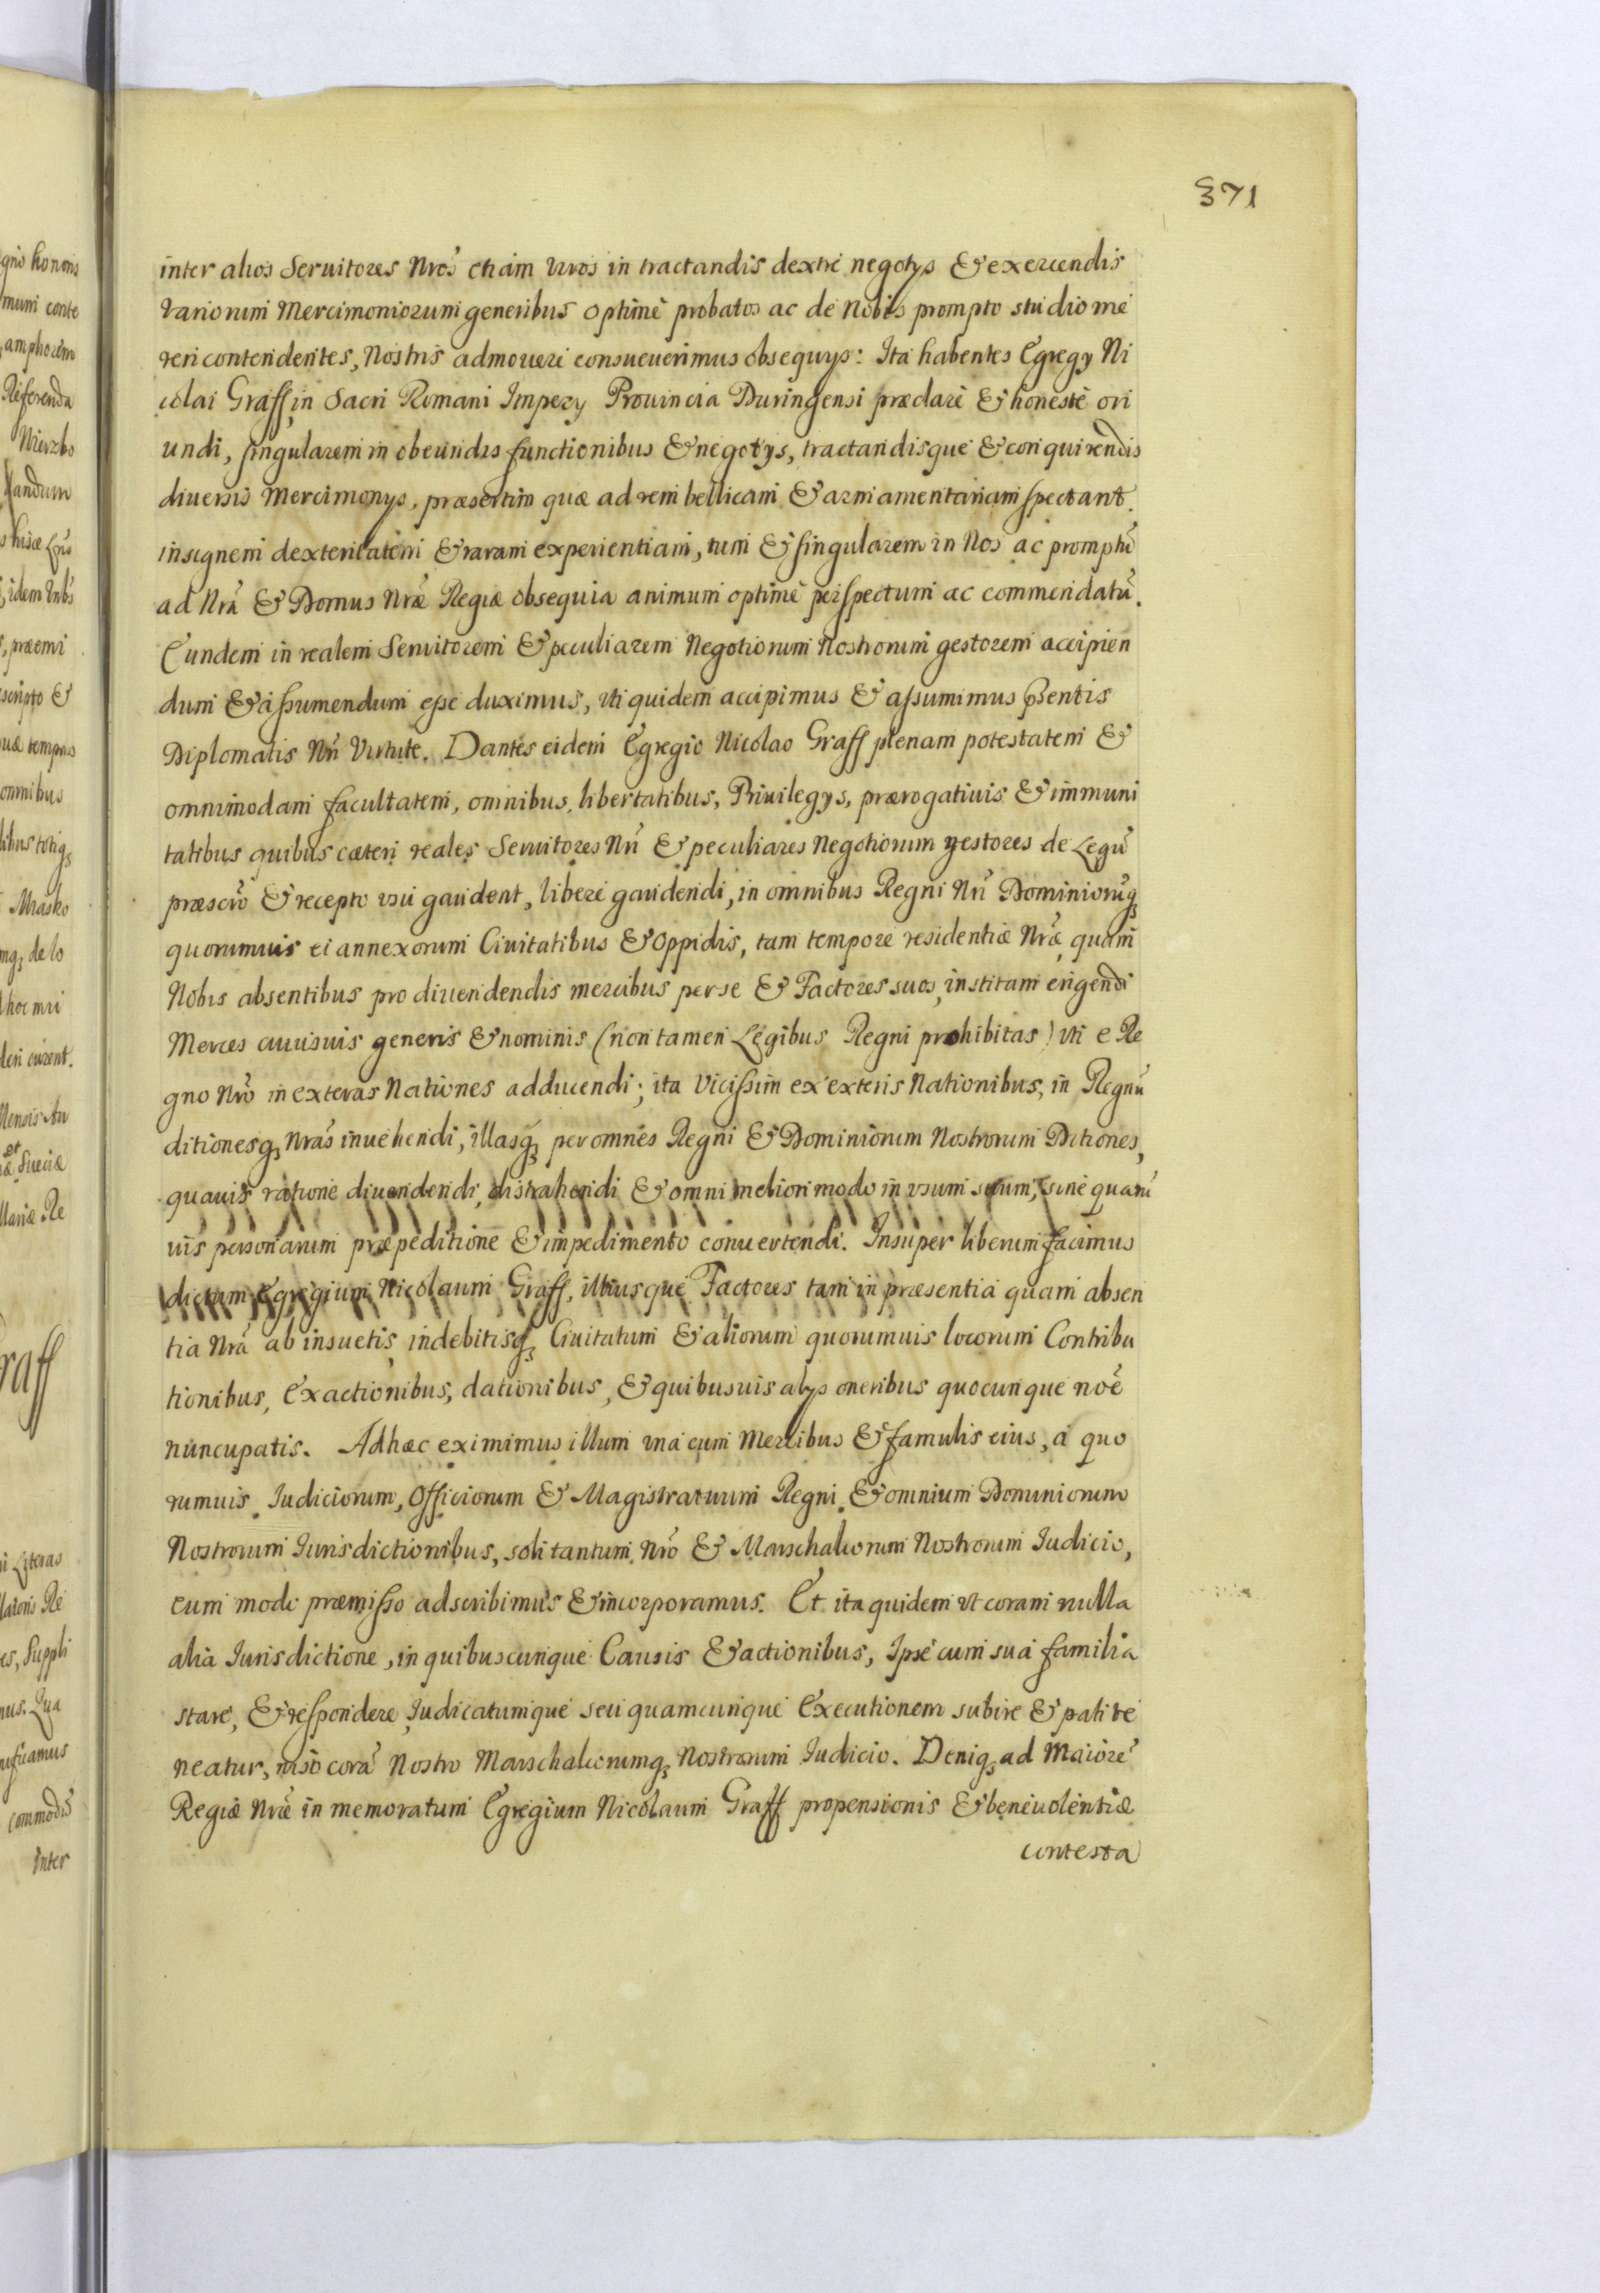 371
inter alios Seruitores Nros etiam viros in tractandis dextrè negotys & exercendis
variorum Mercimoniorum generibus optimè probatos ac de Nobis prompto studio me
reri contendentes, Nostris admoueri consueuerimus obsequys: Ita habentes Egregy Ni
colai Graff in Sacri Romani Impery Prouincia Duringensi præclarè & honestè ori
undi, singularem in obeundis functionibus & negotys, tractandisque & conquirendis
diuersis Mercimonys, præsertim quæ ad rem bellicam & armamentariam spectant.
insignem dexteritatem & raram experientiam, tum & singularem in Nos ac promptū
ad Nrā & Domus Nræ Regiæ obsequia animum optimè perspectum ac commendatū.
Eundem in realem Seruitorem & peculiarem Negotiorum Nostrorum gestorem accipien
dum & assumendum esse duximus, vti quidem accipimus & assumimus pñtis
Diplomatis Nri Virtute. Dantes eidem Egregio Nicolao Graff plenam potestatem &
omnimodam facultatem, omnibus, libertatibus, Priuilegys, prærogatiuis & immuni
tatibus quibus cæteri reales Seruitores Nri & peculiares Negotiorum gestores de Legū
præscrō & recepto vsu gaudent, liberè gaudendi, in omnibus Regni Nri Dominiorūq₃
quorumuis ei annexorum Ciuitatibus & Oppidis, tam tempore residentiæ Nræ, quam
Nobis absentibus pro diuendendis mercibus per se & Factores suos, institam erigendi
Merces cuiusuis generis & nominis (non tamen Legibus Regni prohibitas) vti e Re
gno Nrō in exteras Nationes adducendi; ita vicissim ex exteris Nationibus, in Regnū
ditionesq₃ Nras inuehendi, illasq₃ per omnes Regni & Dominiorum Nostrorum Ditiones,
quauis ratione diuendendi, distrahendi & omni meliori modo in vsum suum, sine quarū
uis personarum præpeditione & impedimento conuertendi. Insuper liberum facimus
dictum Egregium Nicolaum Graff, illiusque Factores tam in præsentia quam absen
tia Nrā ab insuetis indebitisq₃ Ciuitatum & aliorum quorumuis locorum Contribu
tionibus, Exactionibus, dationibus, & quibusuis alys oneribus quocunque noē
nuncupatis. Ad hæc eximimus illum vna cum Mercibus & famulis eius, a quo
rumuis Iudiciorum, Officiorum & Magistratuum Regni & omnium Dominiorum
Nostrorum Iurisdictionibus, soli tantum Nrō & Marschalcorum Nostrorum Iudicio,
eum modo præmisso adscribimus & incorporamus. Et ita quidem vt coram nulla
alia Iurisdictione, in quibuscunque Causis & actionibus, Ipse cum sua familia
stare, & respondere Iudicatumque seu quamcunque Executionem subire & pati te
neatur, nisi corā Nostro Marschalcorumq₃ Nostrorum Iudicio. Deniq₃ ad Maiorē
Regiæ Nræ in memoratum Egregium Nicolaum Graff propensionis & beneuolentiæ
contesta